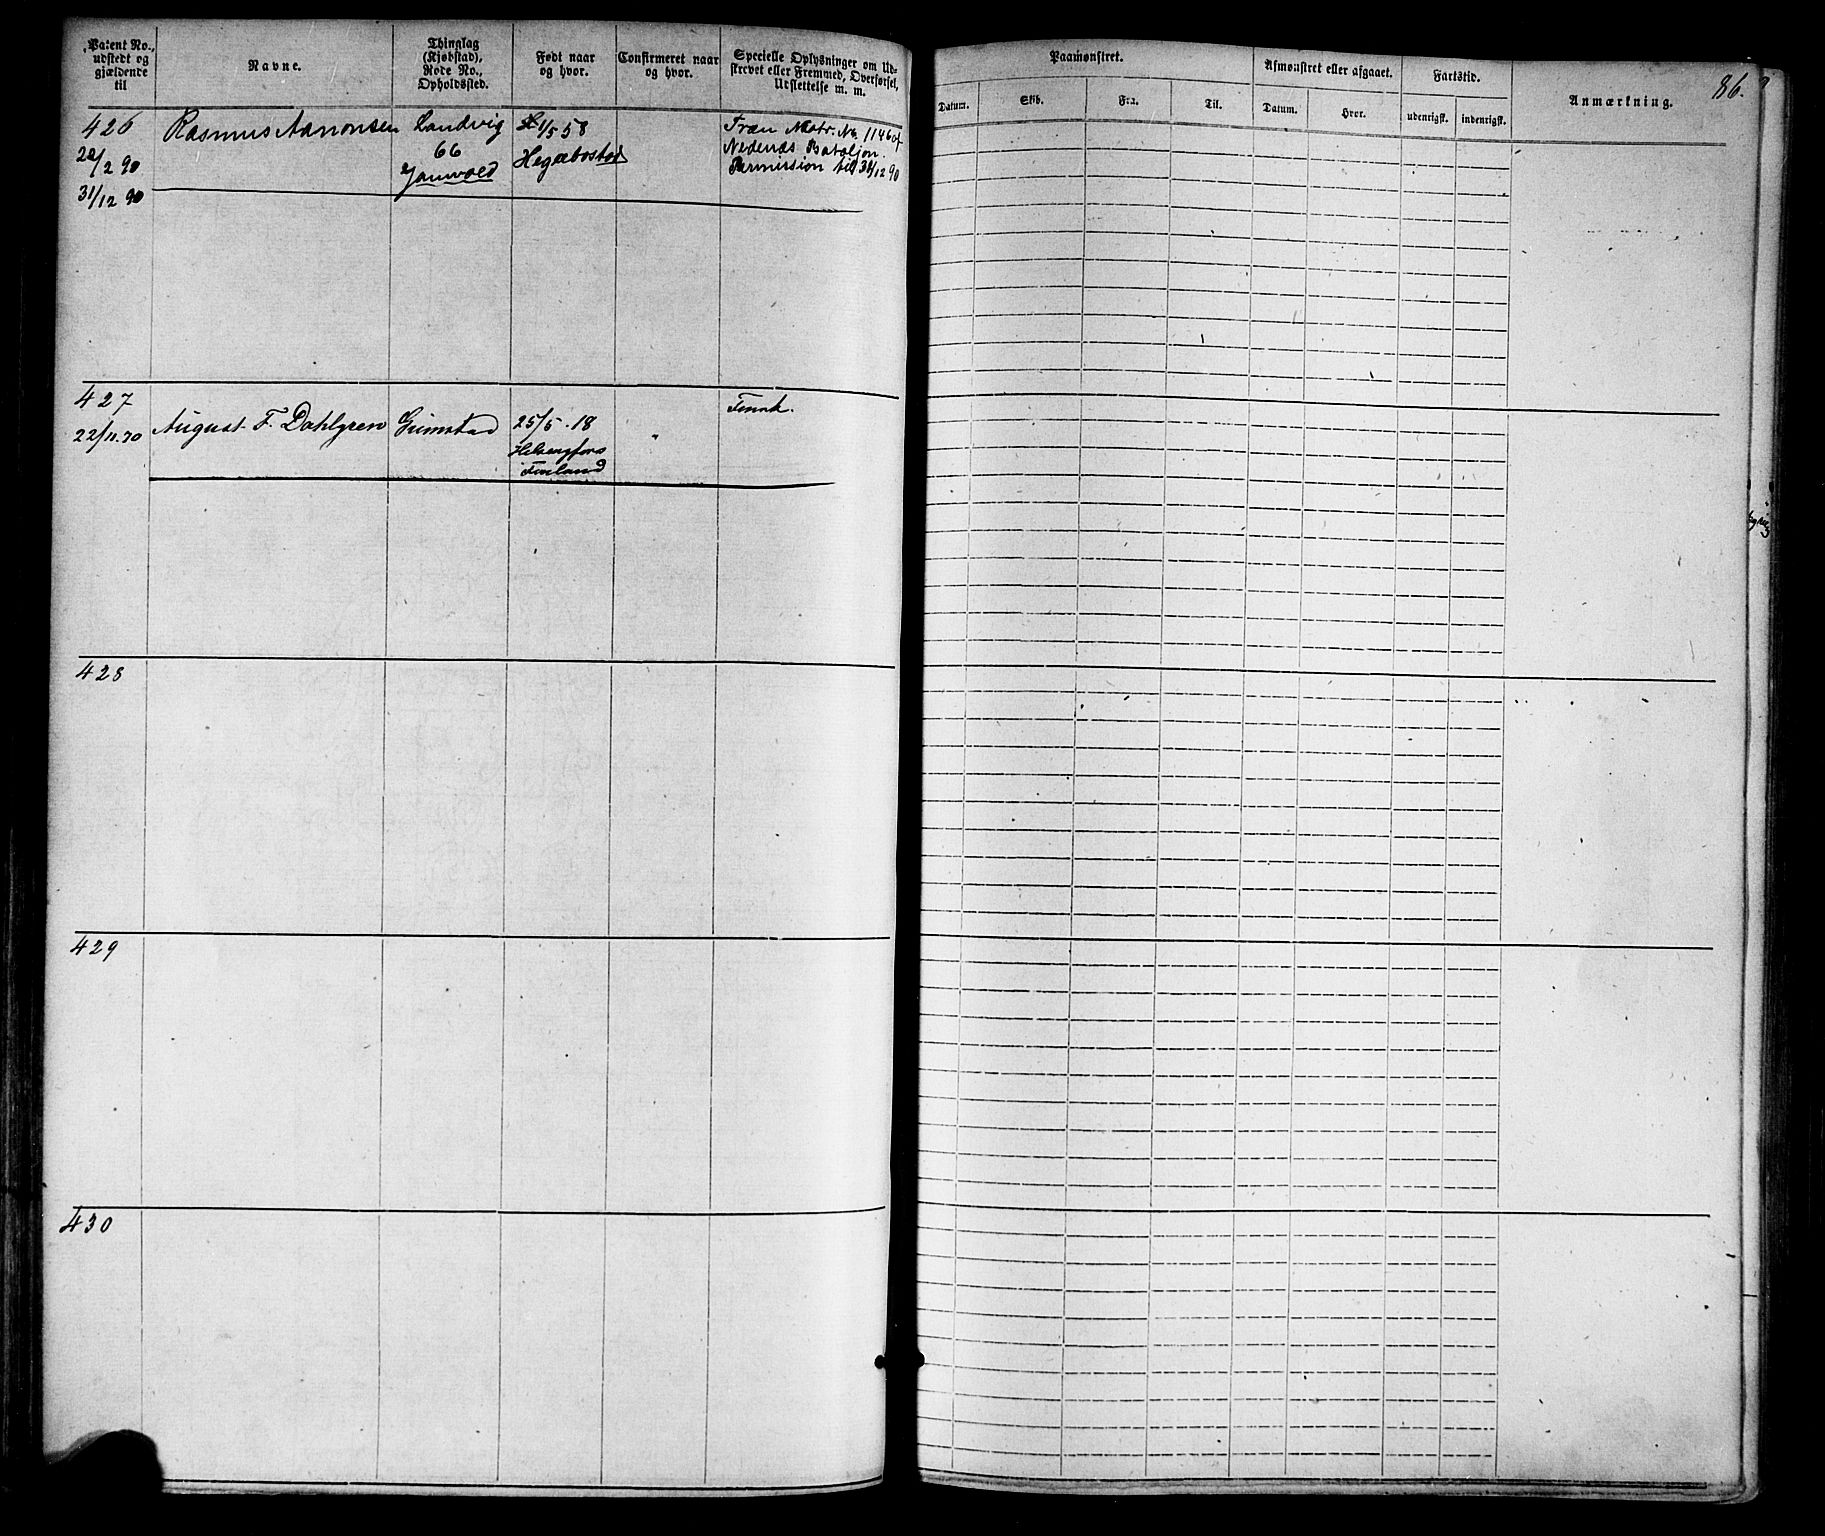 Patent No., udstedt og gjældende til
Navne.
Thinglag (Kjøbstad), Rode No., Opholdssted.
Født naar og hvor.
Confirmeret naar og hvor.
Specielle Oplysninger om Udskrevet eller Fremmed, Overførsel, Udslettelse m. m.
Paamønstret.
Datum.
Skib.
Fra.
Til.
Afmønstret eller afgaaet.
Datum.
Hvor.
Fartstid.
udenrigsk.
indenrigsk.
Anmærkning.
86.
426
Rasmus Aanonsen
Landvig
1/5 58
Træn Matr. No. 1146 af
20/2 90
66
Hegæbostad
Nedenæs Bataljon.
Permission til 31/12 90
31/12 90
427
22/11.70
August F. Dahlgren
Grimstad
25/5.18
Helsengfors
Finland
Finsk.
428
429
430